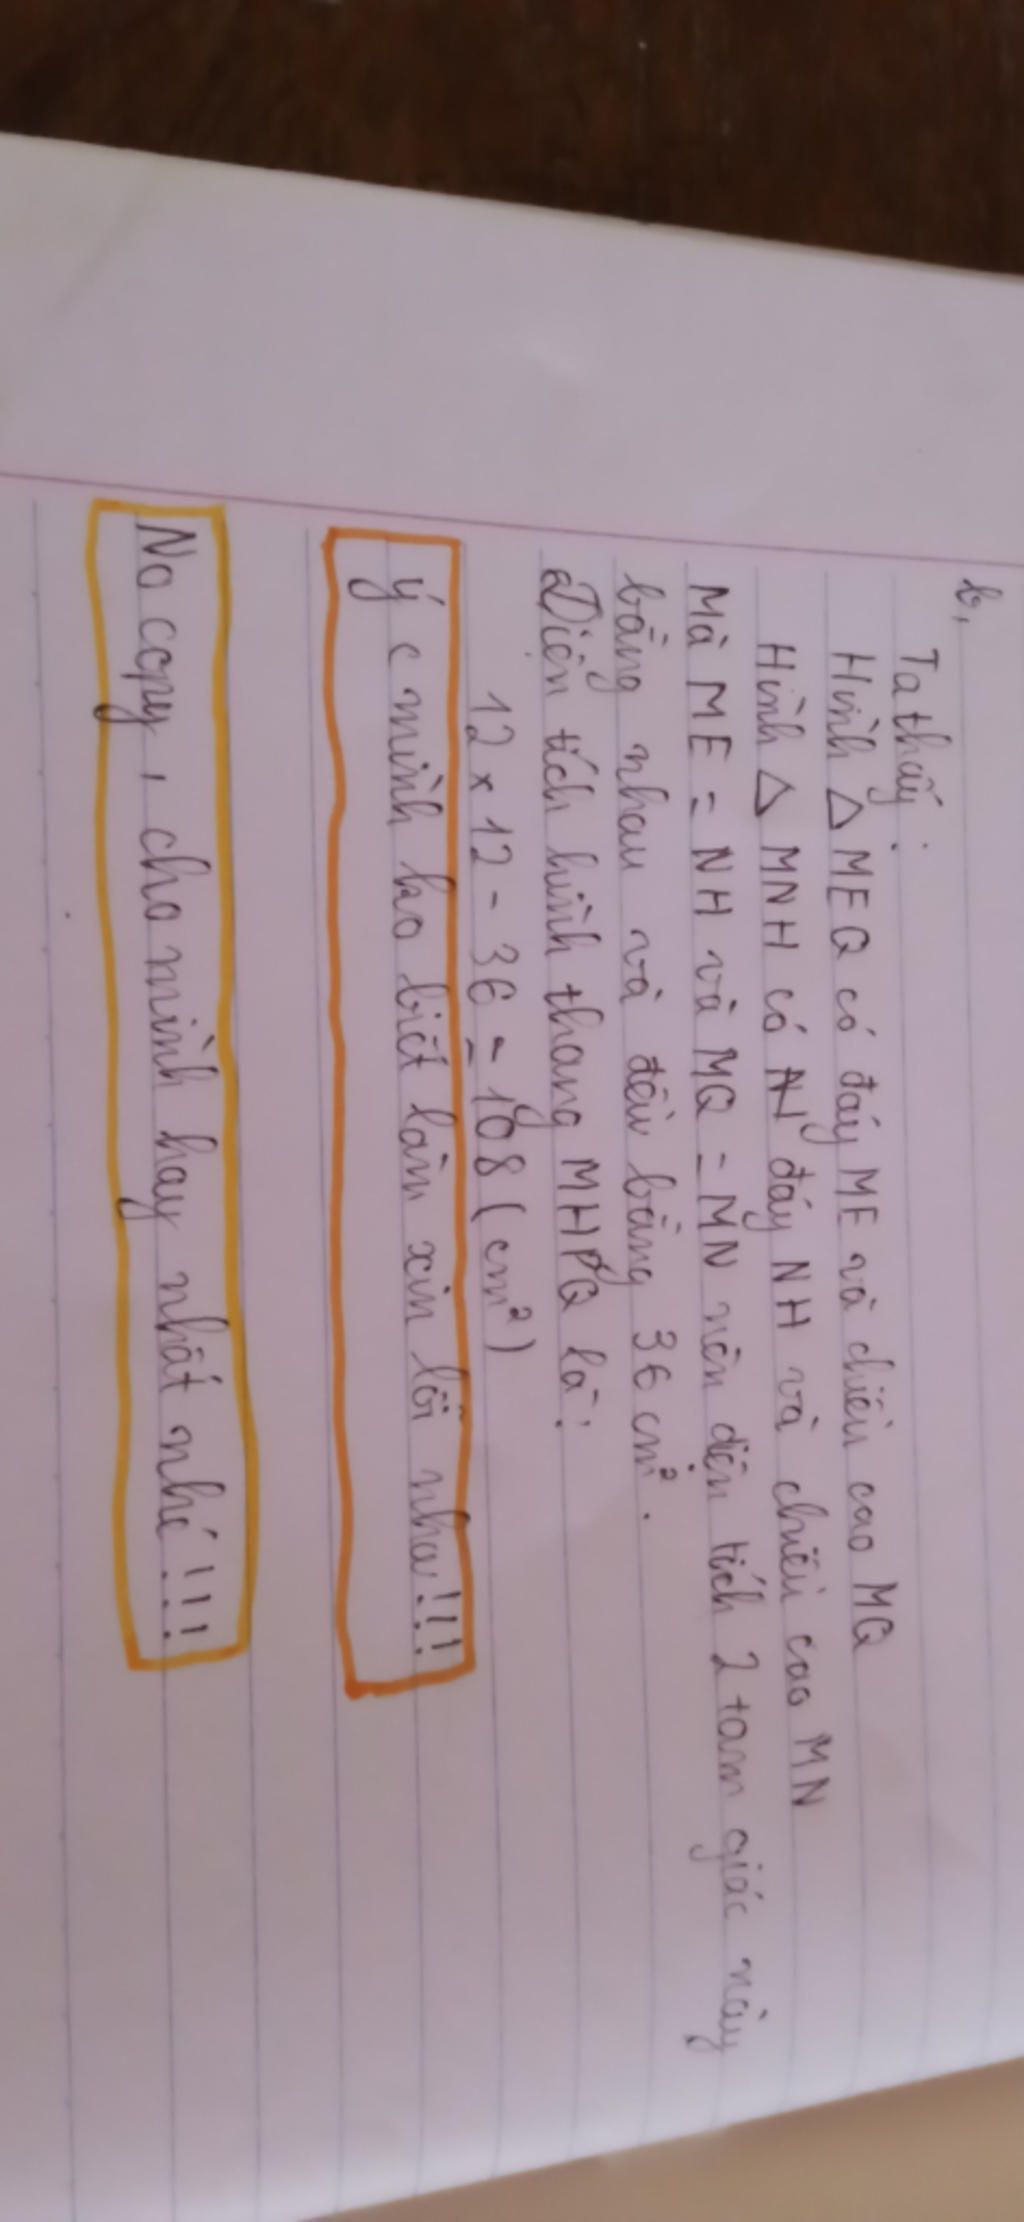 b,
Ta thấy:
Hình △ MEQ có đáy ME và chiều cao MQ
Hình △ MNH có đáy NH và chiều cao MN
Mà ME = NH và MQ = MN nên diện tích 2 tam giác này
bằng nhau và đều bằng 36 cm².
Diện tích hình thang MHPQ là:
12 x 12 - 36 = 108 (cm²)
ý c mình ko biết làm xin lỗi nha!!!
No copy, cho mình hay nhất nhé!!!